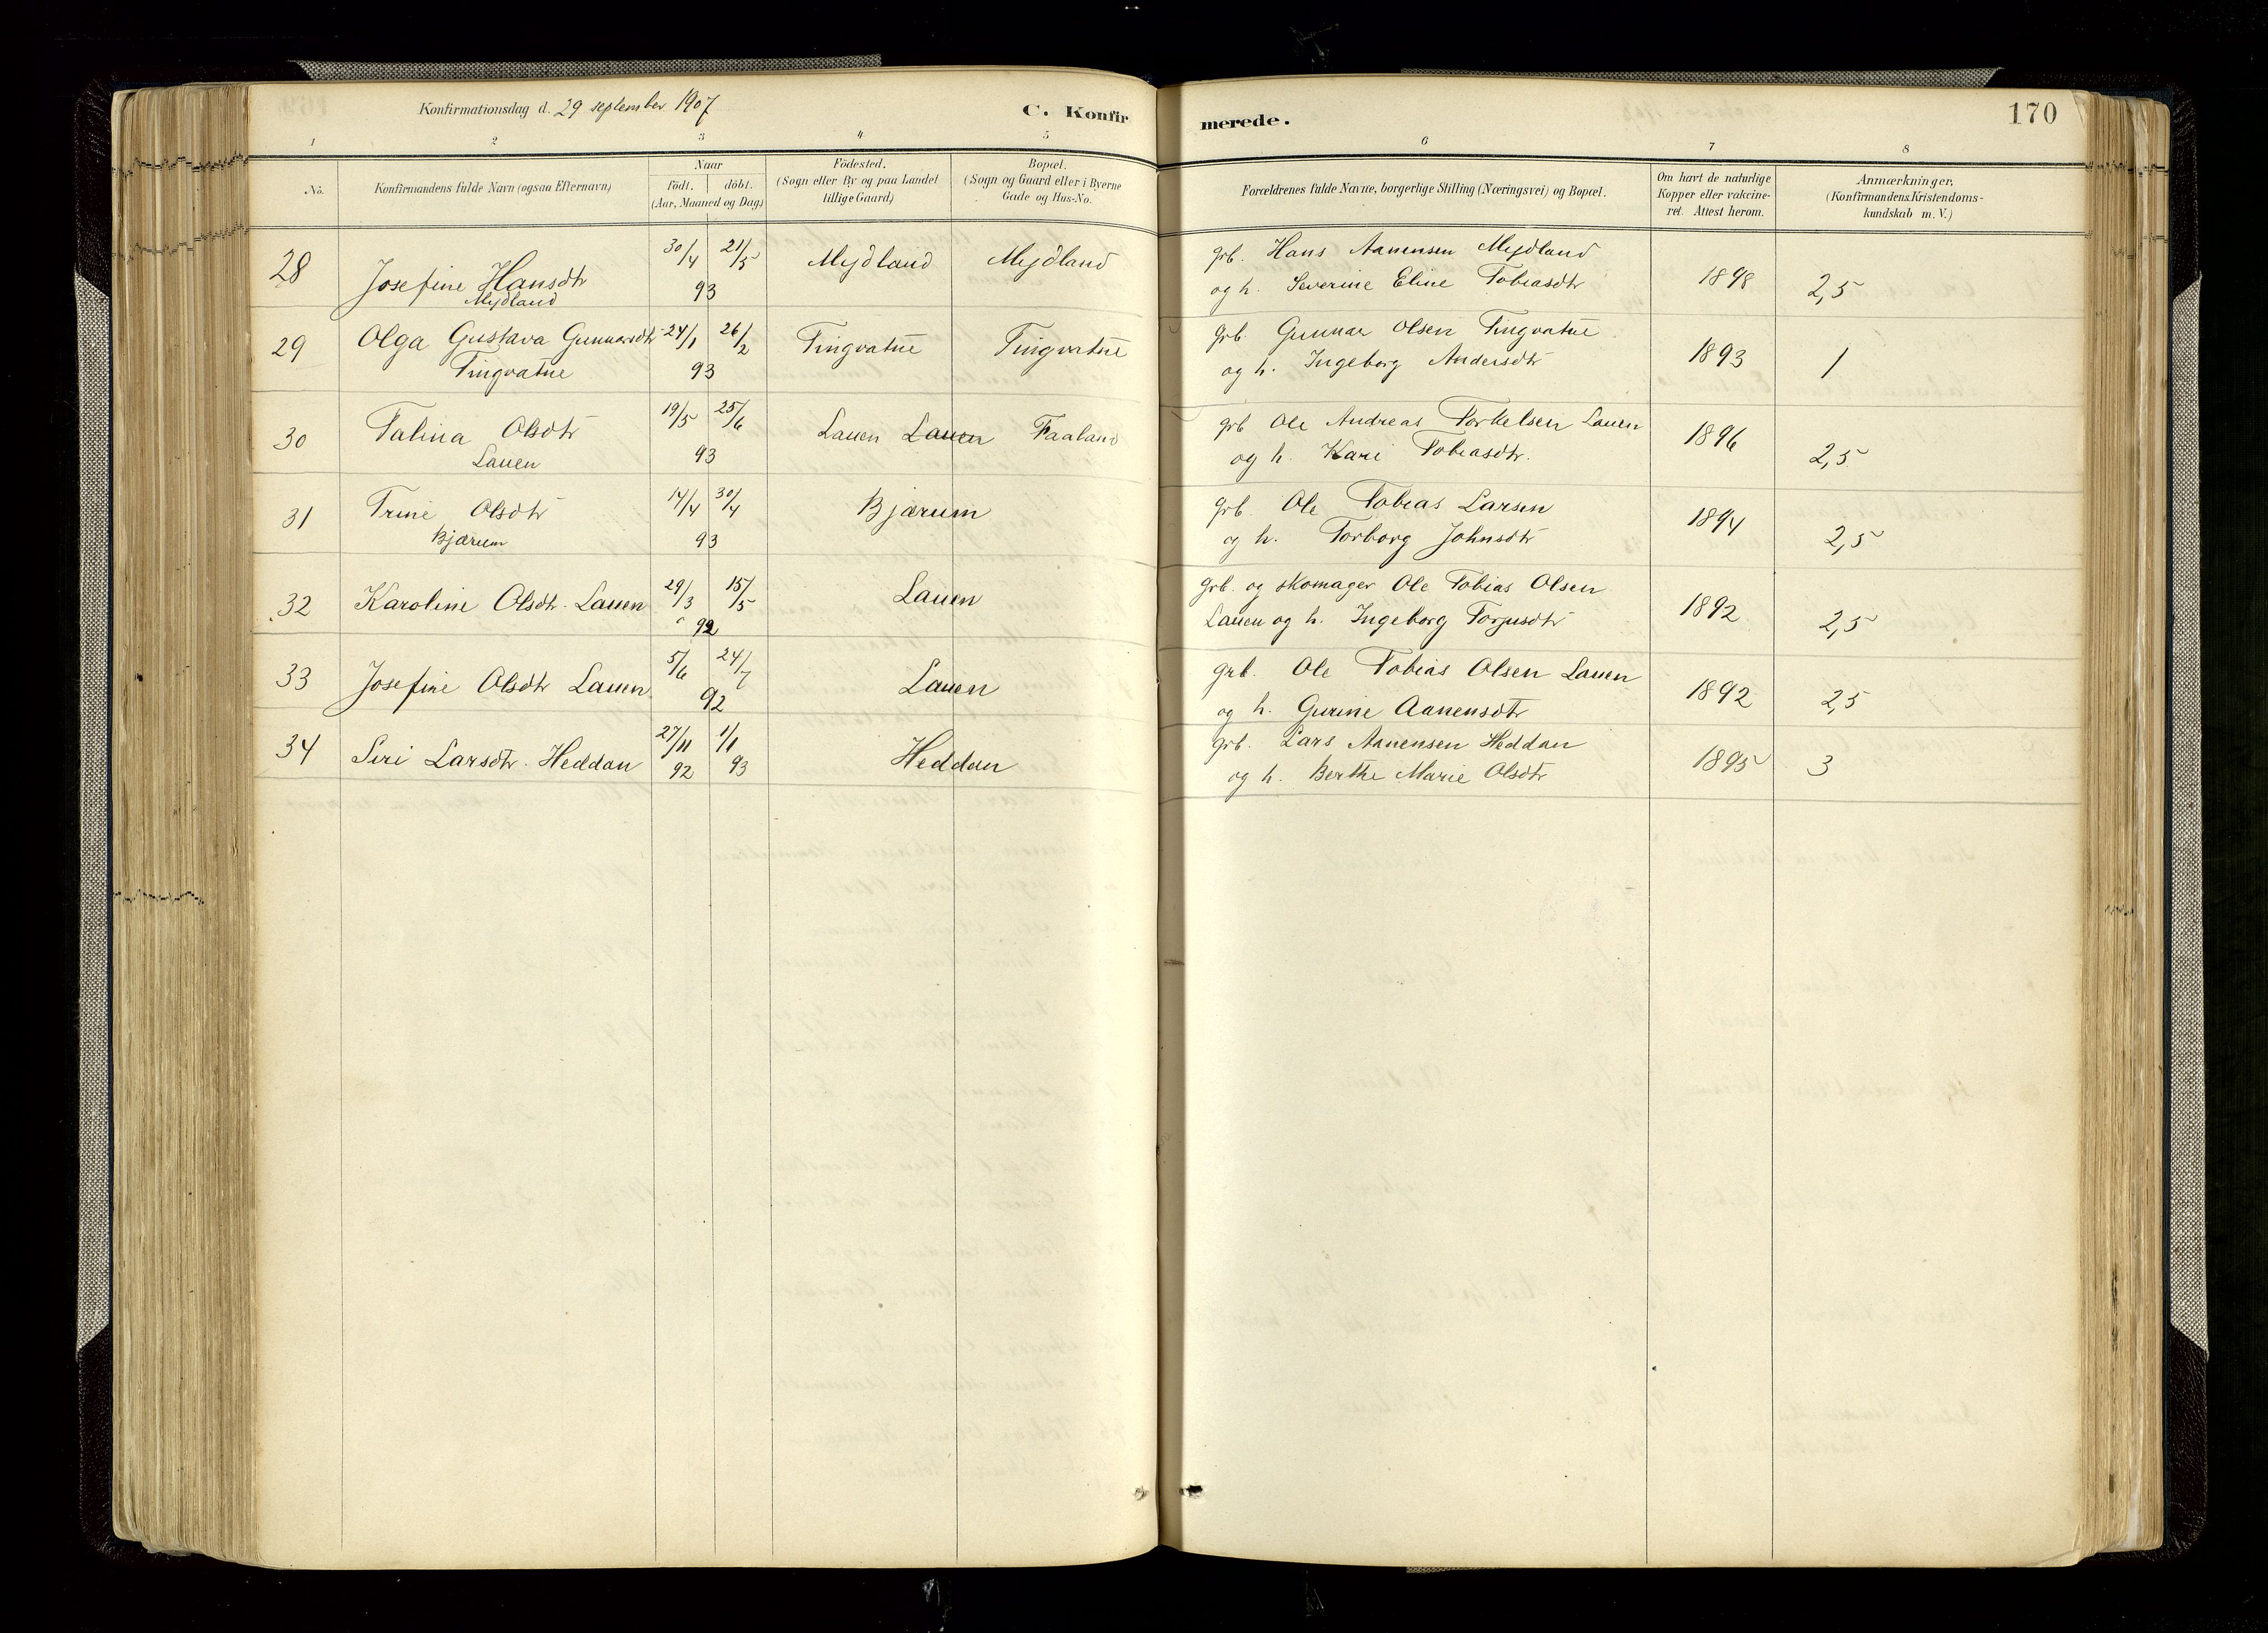 Konfirmationsdag d. 29 september 1907
C. Konfirmerede.
170
1 2 3 4 5 6 7 8
No. Konfirmandens fulde Navn (ogsaa Efternavn) Naar födt. döbt. (Aar, Maaned og Dag) Födested. (Sogn eller By og paa Landet tillige Gaard) Bopæl. (Sogn og Gaard eller i Byerne Gade og Hus-No. Forældrenes fulde Navne, borgerlige Stilling (Næringsvei) og Bopæl. Om havt de naturlige Kopper eller vakcineret. Attest herom. Anmærkninger, (Konfirmandens Kristendomskundskab m. V.)
28 Josefine Hansdtr 30/4 21/5 Mydland Mydland grb. Hans Aanensen Mydland
Mydland 93 og h. Severine Eline Tobiasdtr 1898 2,5
29 Olga Gustava Gunnarsdtr 24/1 26/2 Tingvatne Tingvatne grb. Gunnar Olsen Tingvatne
Tingvatne 93 og h. Ingeborg Andersdtr 1893 1
30 Talina Olsdtr 19/5 25/6 Lauen Lauen Faaland grb Ole Andreas Torkelsen Lauen
Lauen 93 og h. Kari Tobiasdtr. 1896 2,5
31 Trine Olsdtr 14/4 30/4 Bjærum grb. Ole Tobias Larsen
Bjærum 93 og h. Torborg Johnsdtr 1894 2,5
32 Karoline Olsdtr. Lauen 29/3 15/5 Lauen grb. og skomager Ole Tobias Olsen
92 Lauen og h. Ingeborg Torjusdtr 1892 2,5
33 Josefine Olsdtr Lauen 5/6 24/7 Lauen grb. Ole Tobias Olsen Lauen
92 og h. Gurine Aanensdtr 1892 2,5
34 Siri Larsdtr. Heddan 27/11 1/1 Heddan grb. Lars Aanensen Heddan
92 93 og h. Berthe Marie Olsdtr 1895 3